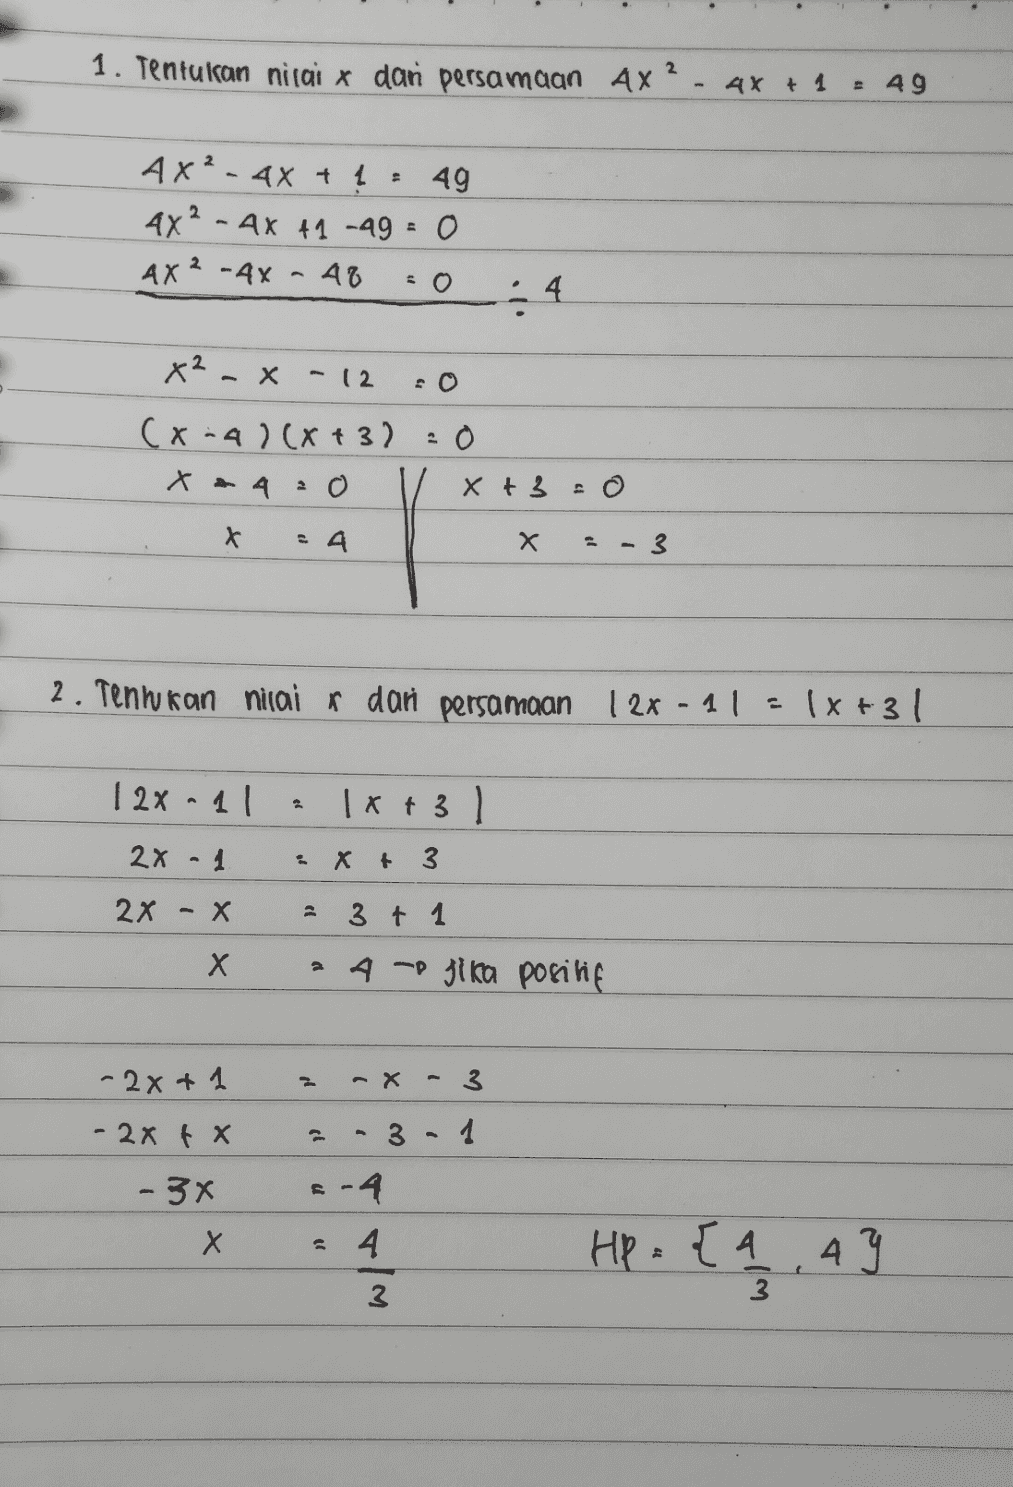 1. Tentukan nilai x dari persamaan 4x² - 4x + 1 = 49
4x² - 4x + 1 = 49
4x² - 4x +1 -49 = 0
4x² -4x - 48 = 0 ÷ 4
x² - x - 12 = 0
(x - 4)(x + 3) = 0
x - 4 = 0 x + 3 = 0
x = 4 x = - 3
2. Tentukan nilai x dari persamaan |2x - 1| = |x + 3|
|2x - 1| = |x + 3|
2x - 1 = x + 3
2x - x = 3 + 1
x = 4 → jika positif
-2x + 1 = -x - 3
-2x + x = -3 - 1
-3x = -4
x = 4/3 HP = {4/3, 4}